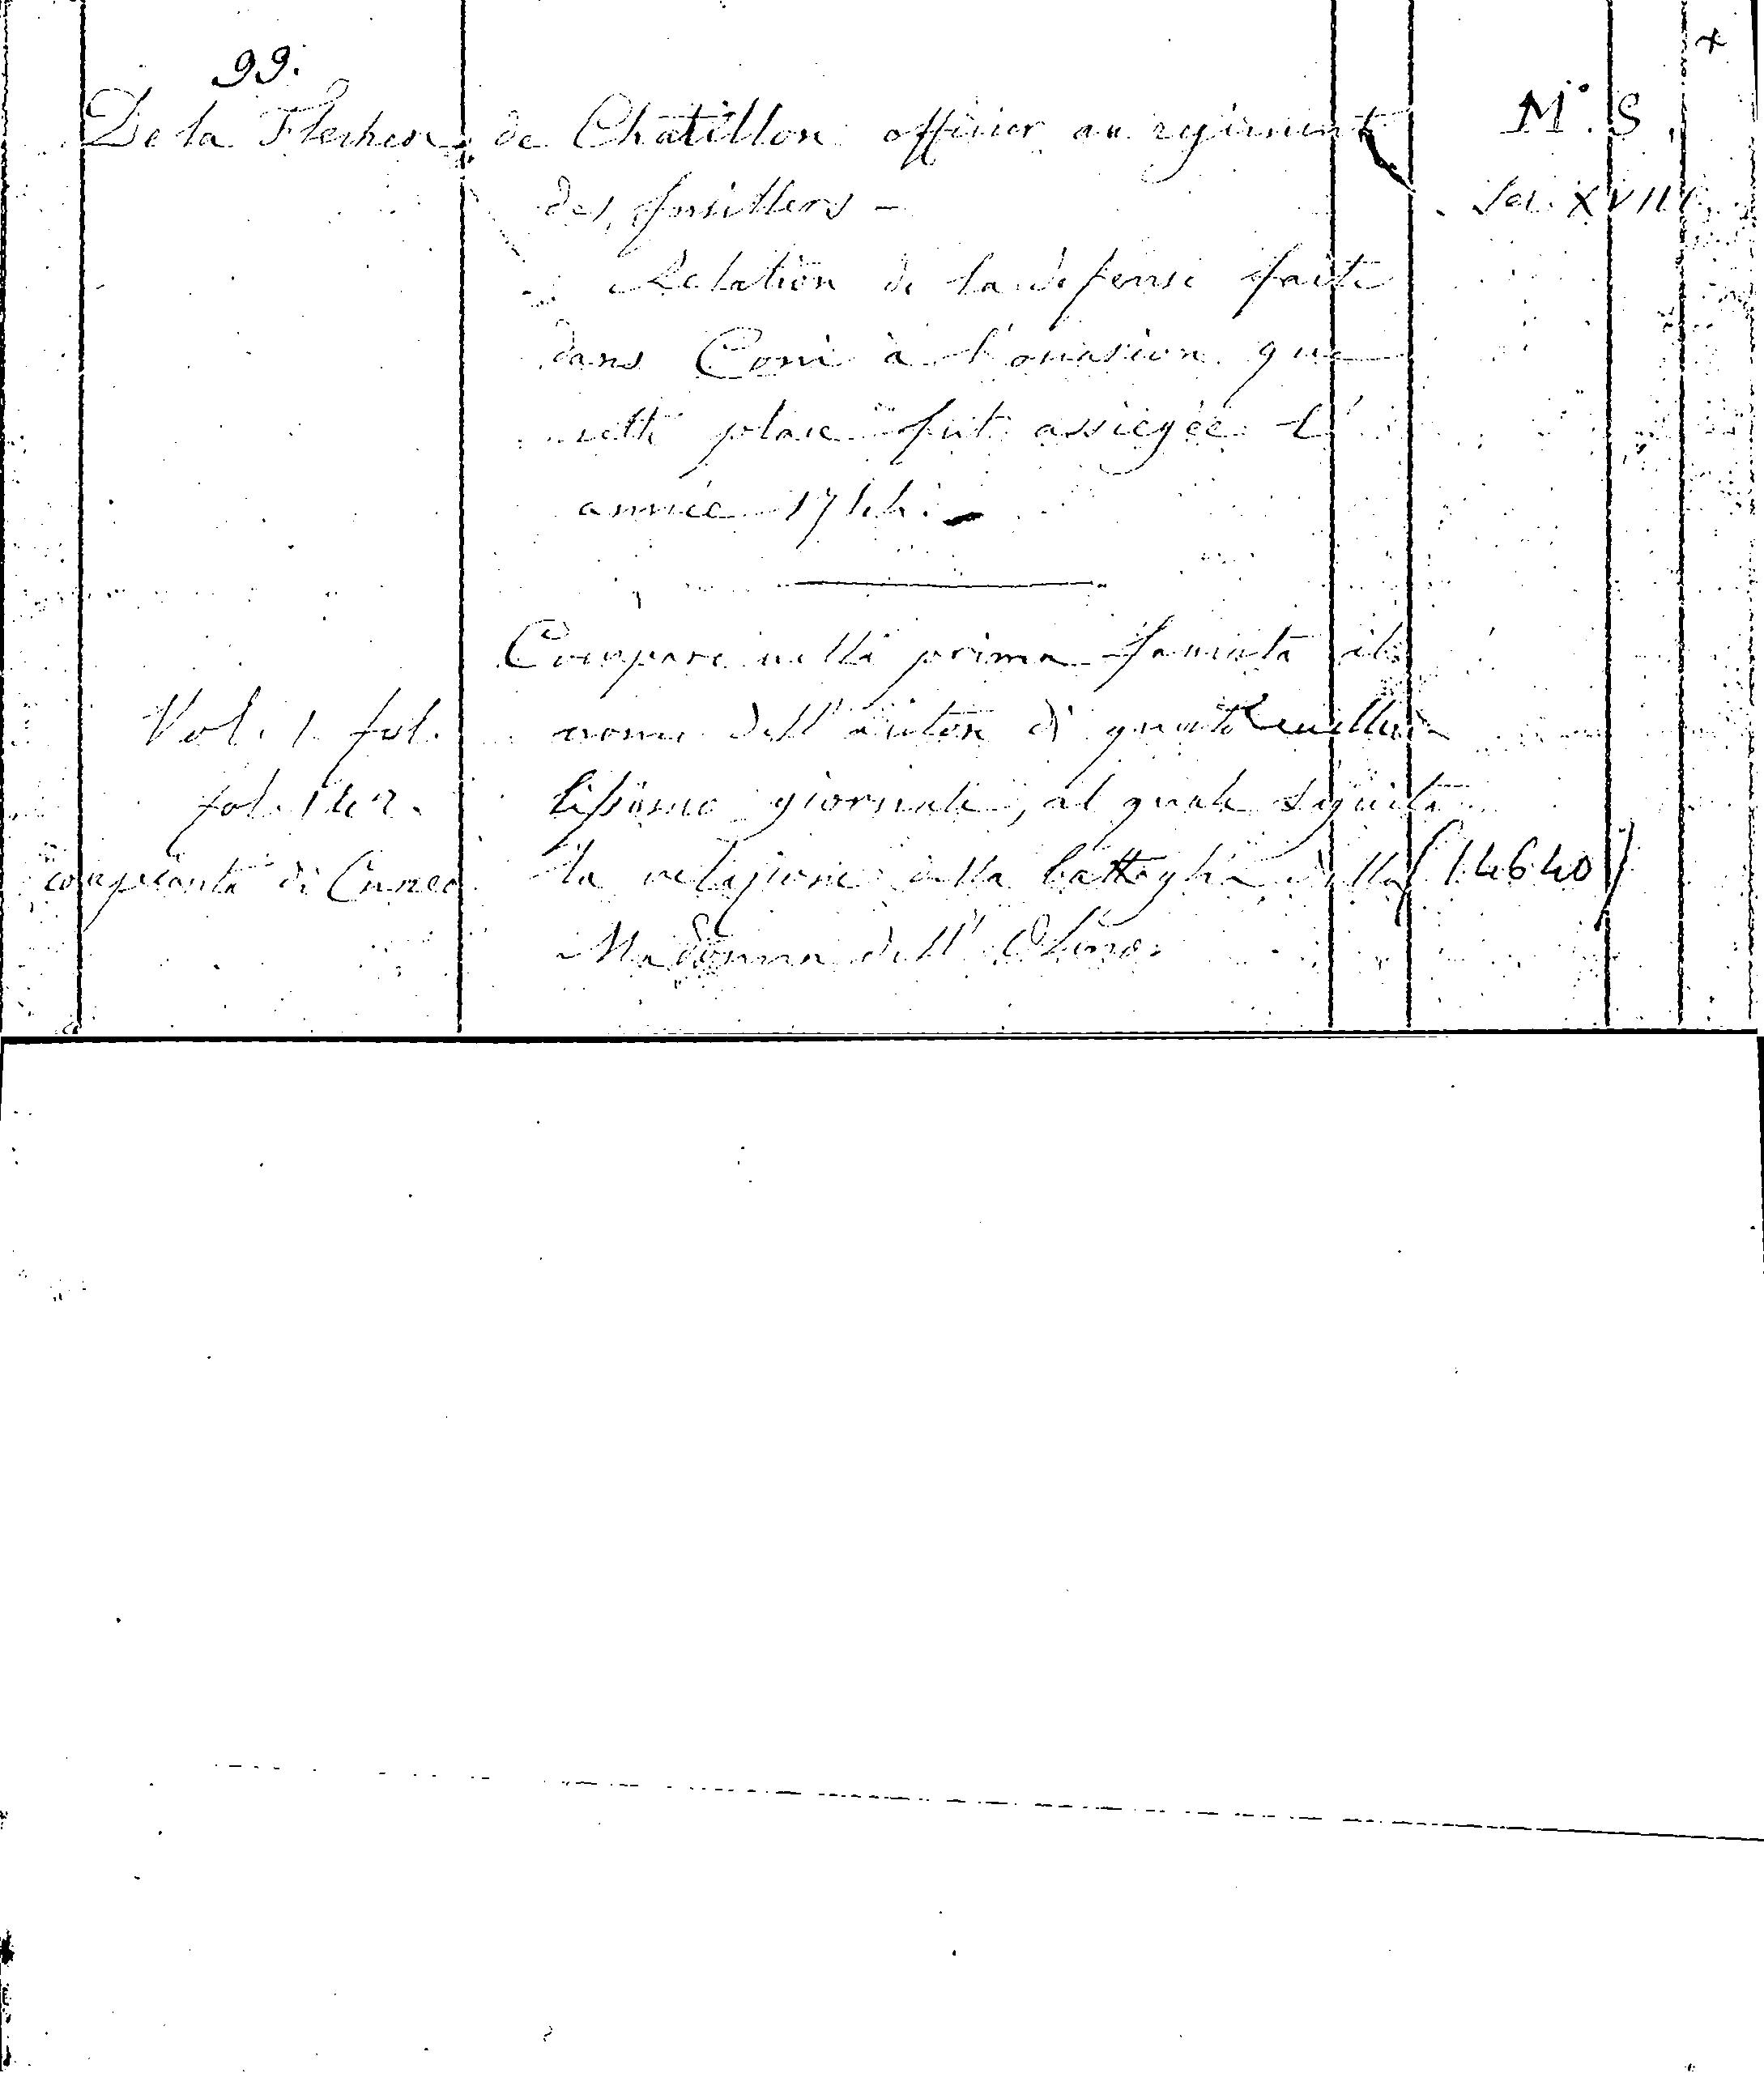 99.
De la Flecher de Chatillon officier au regiment M.S.
des fusillers - Sec. XVIII
Relation de la defense faite
dans Coni à l'occasion que
cette place fut assiegée l'
année 1744. -
Compare nella prima facciata il
Vol. 1. fol. nome dell'autore di questo
fol. 142. giornale, al quale seguita
di Cuneo la relazione della battaglia della (14640)
Madonna dell'Olmo.